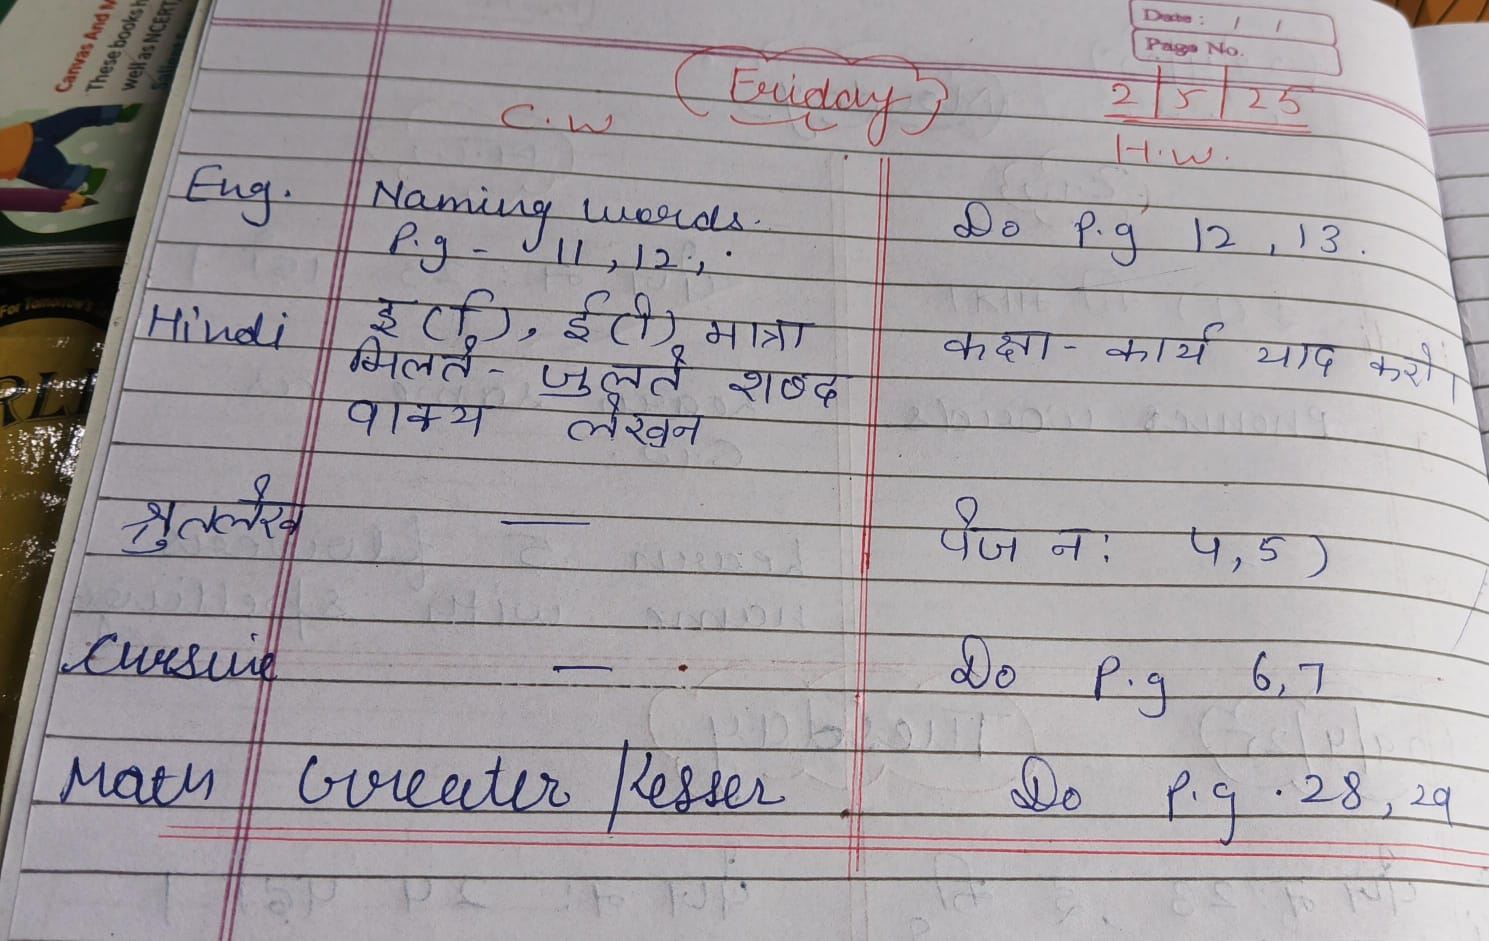 Canvas And
These books
well as NCERT
For Tomorrow's
Date: / /
Page No.
(Friday)
2/5/25
C.W
H.W.
Eng. Naming words. Do P.g 12, 13.
P.g - 11, 12,
Hindi इ (ि), ई (ी) मात्रा कक्षा - कार्य याद करो।
मिलते - जुलते शब्द
वाक्य लेखन
श्रुतलेख — पेज न: 4, 5)
Cursive — Do P.g 6, 7
Math Greater / Lesser Do P.g . 28, 29